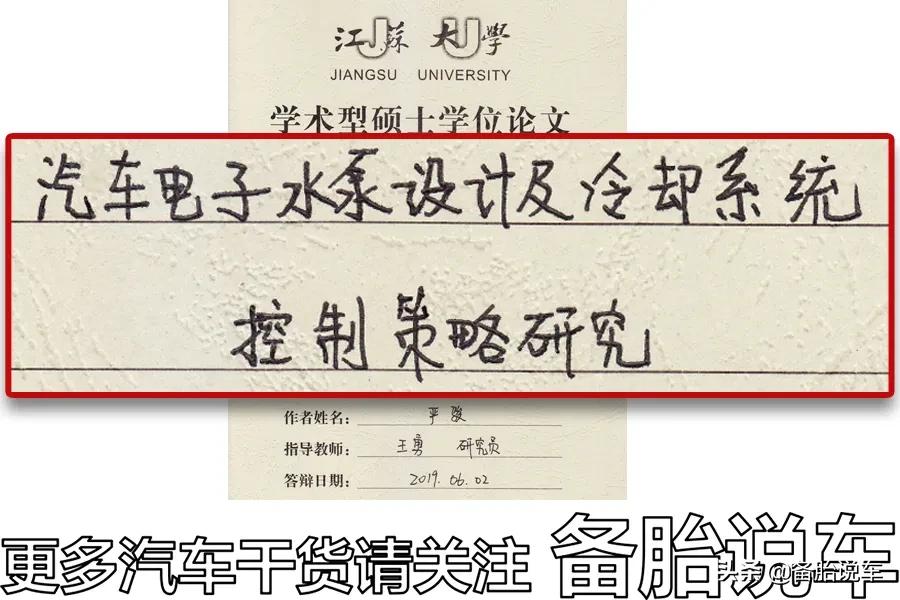 江苏大学
JIANGSU UNIVERSITY
学术型硕士学位论文
汽车电子水泵设计及冷却系统
控制策略研究
作者姓名：严骏
指导教师：王勇 研究员
答辩日期：2019.06.02
更多汽车干货请关注 备胎说车
头条 @备胎说车